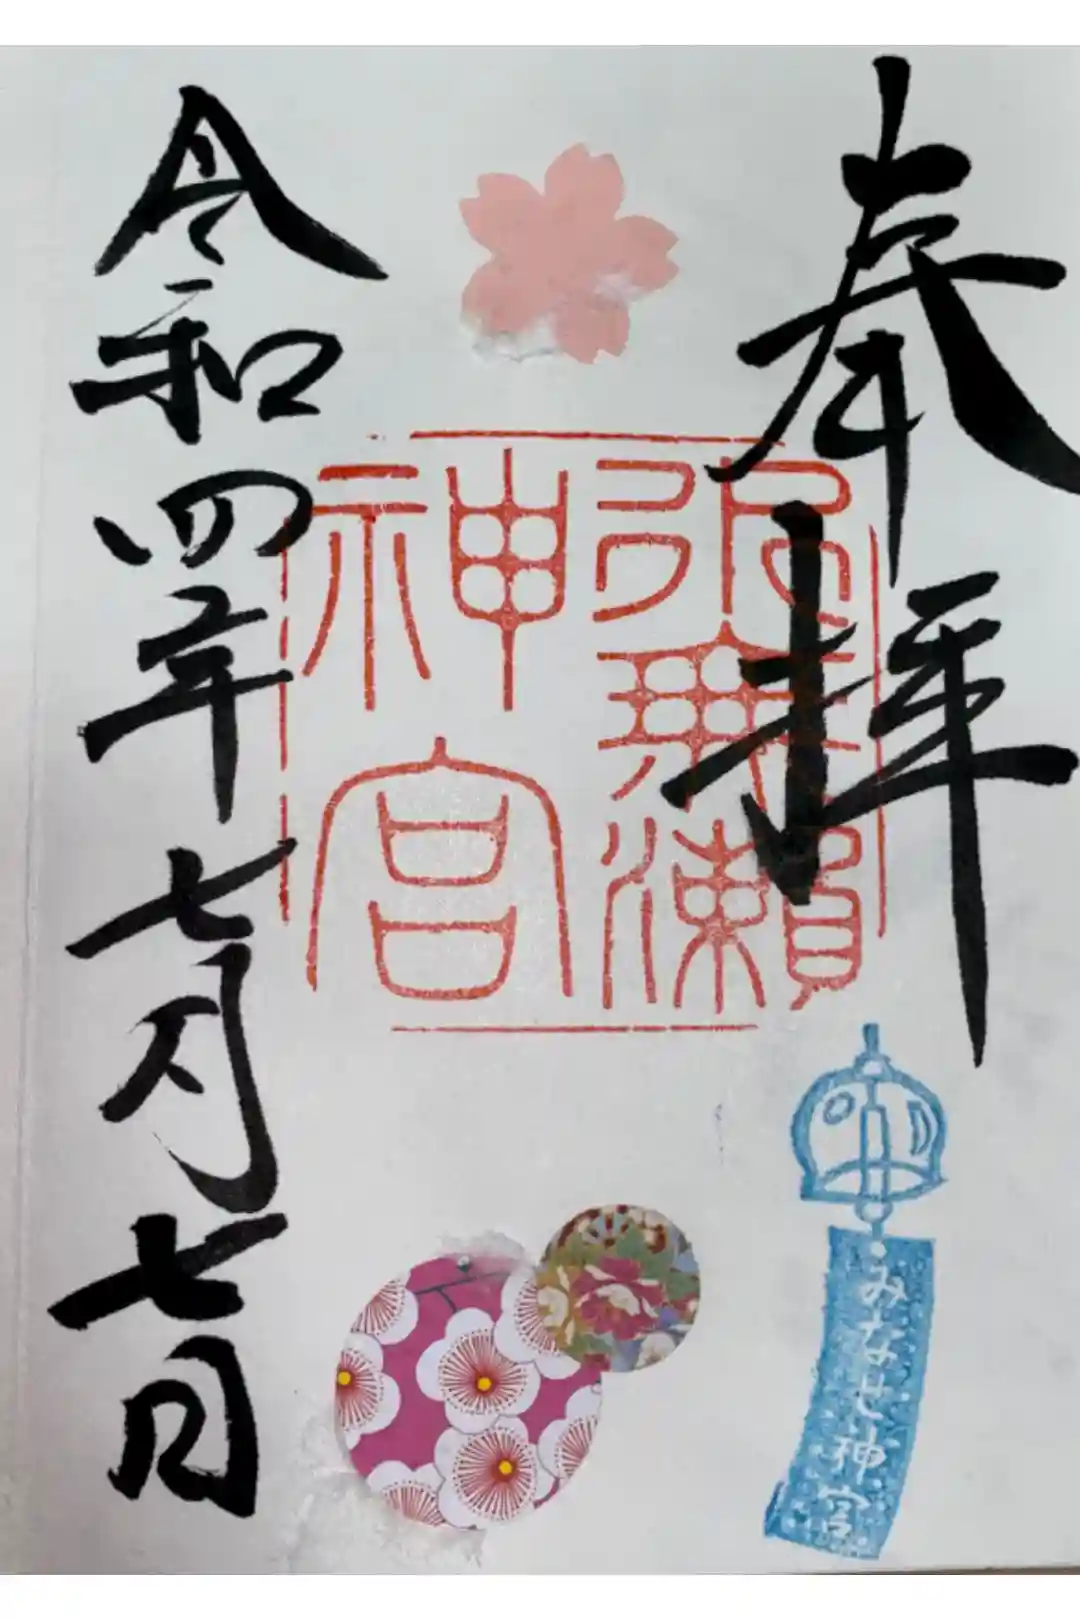 奉拝
水無瀬
神宮
令和四年七月七日
みなせ神宮